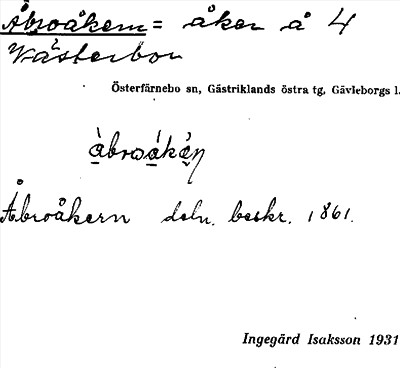 Åbroåkern = åker å 4
Västerbor
Österfärnebo sn, Gästriklands östra tg, Gävleborgs l.
Åbroåkern deln. beskr. 1861.
Ingegärd Isaksson 1931